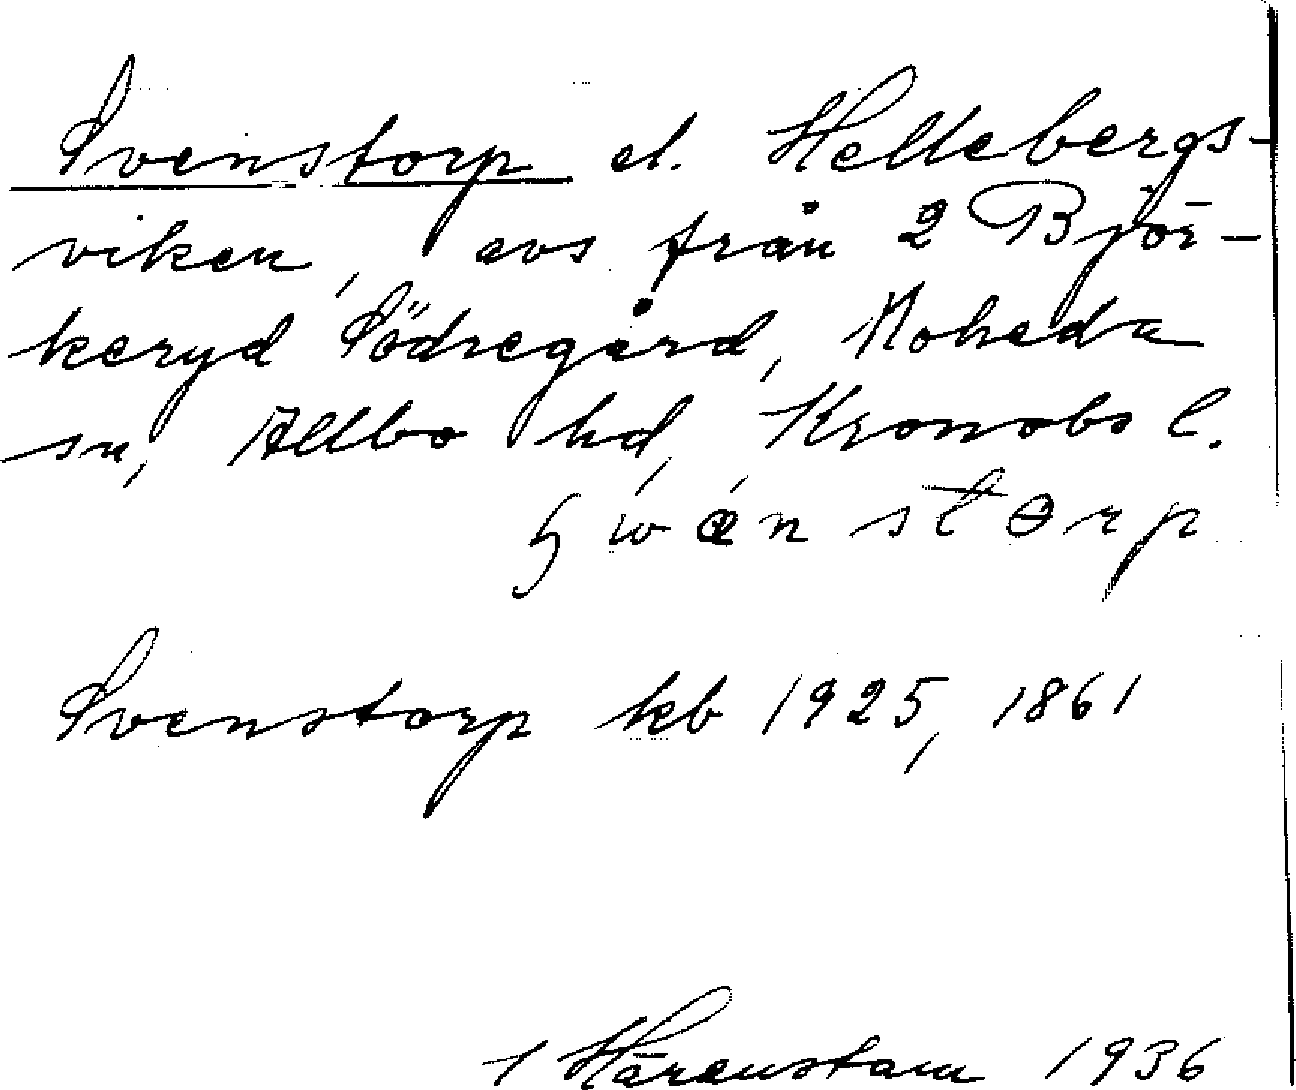 Svenstorp el. Hellebergs-
viken, avs från 2 Björ-
keryd Södregård, Moheda
sn, Allbo hd, Kronobs l.
swänstorp
Svenstorp kb 1925, 1861
Härenstam 1936